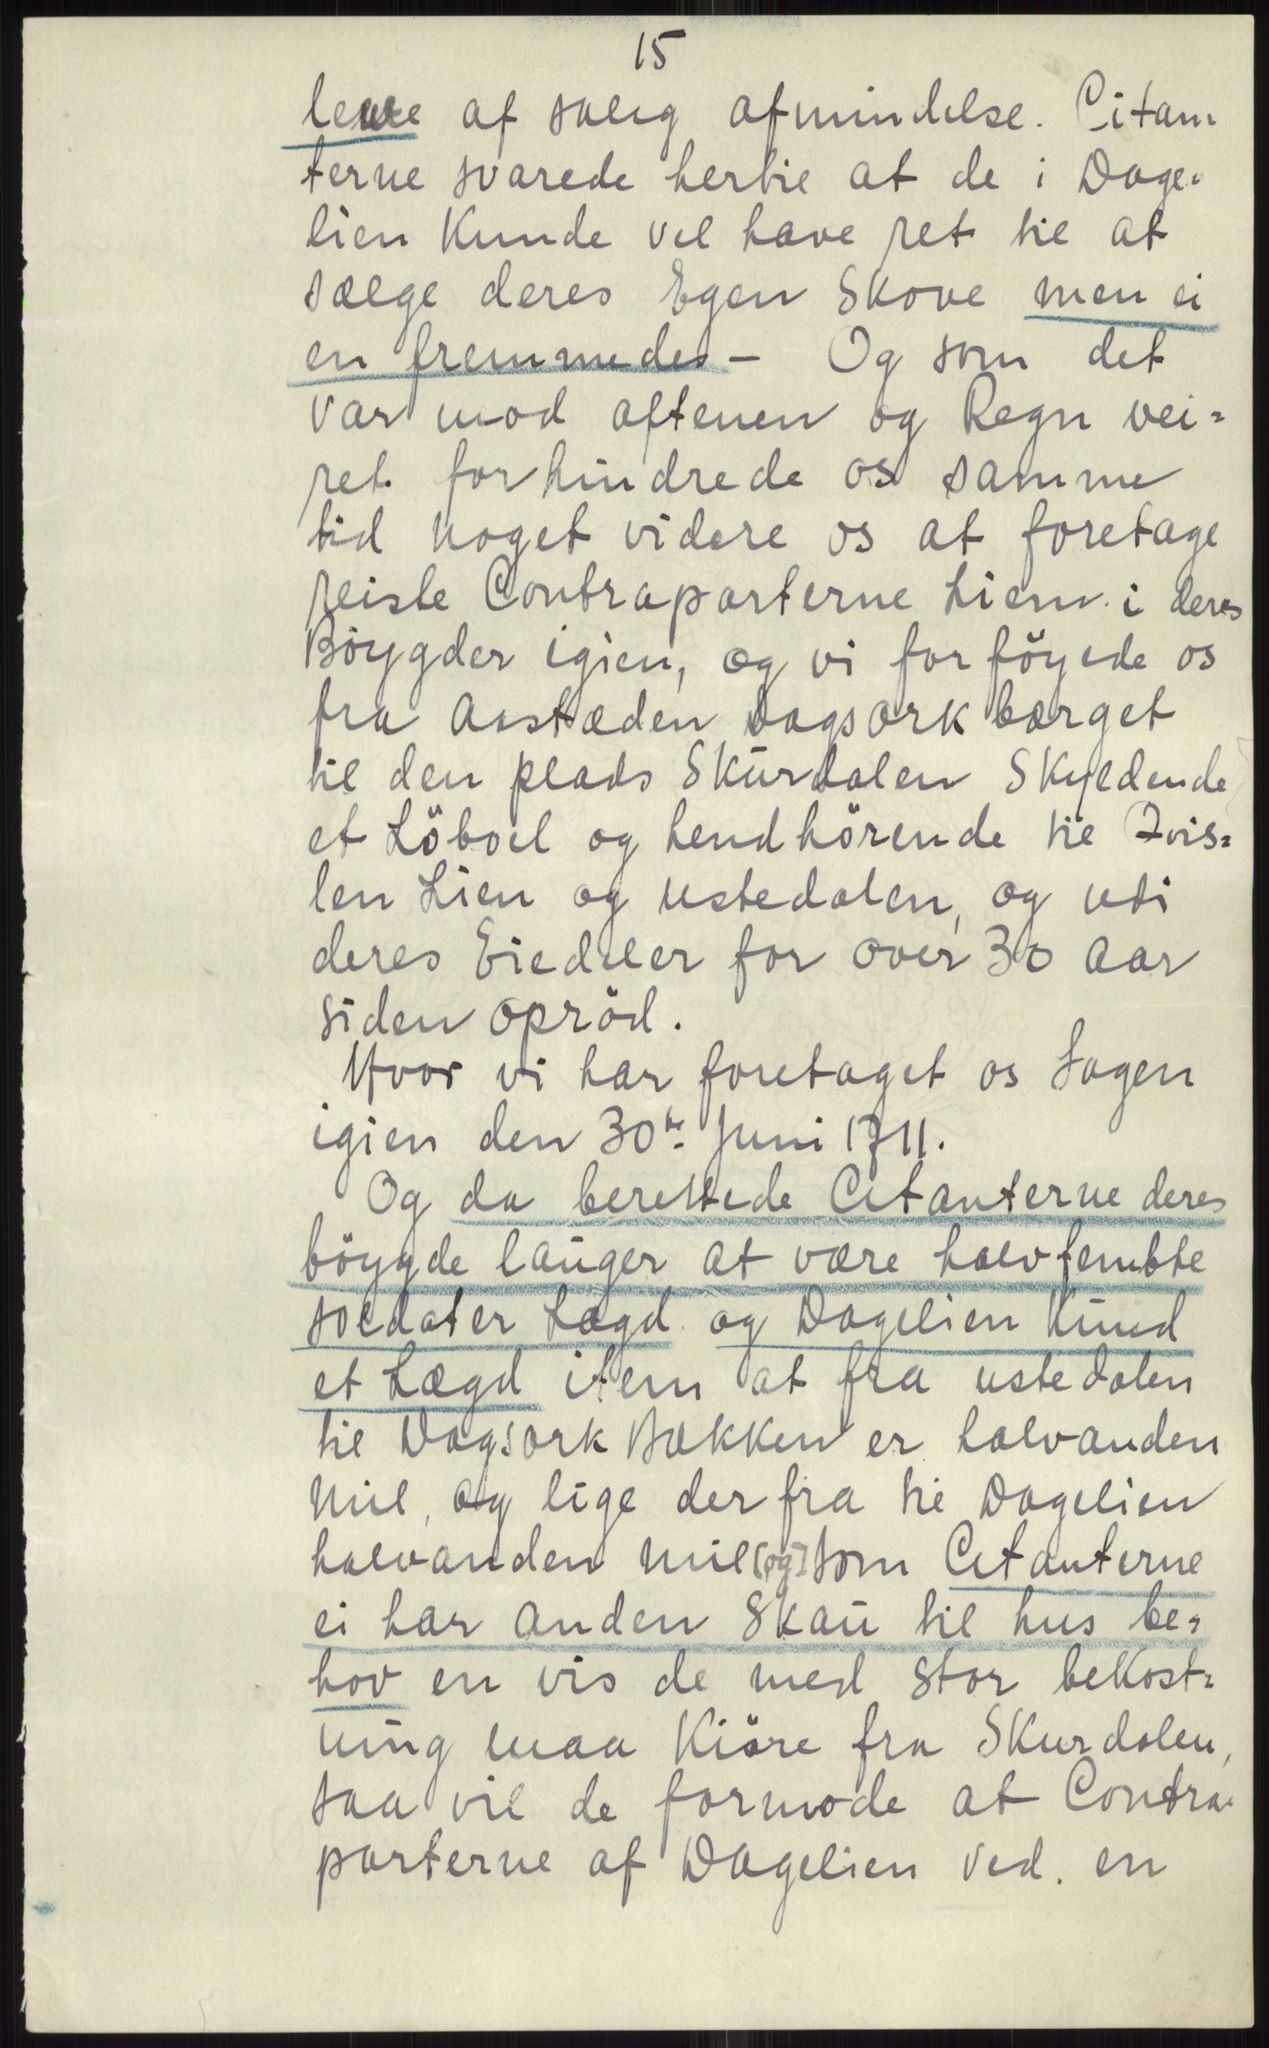 15
lewe af salig afmindelse. Citan
terne svarede hertil at de i Dage-
lien Kunde vel have ret til at
sælge deres Egen Skove men ei
en fremmedes - Og som det
var mod aftenen og Regn vei=
ret forhindrede os samme
tid noget videre os at foretage
reiste Contraparterne hiem i deres
Böygder igien, og vi forföyede os
fra Aastæden Dagsork bærget
til den plads Skürdalen Skyldende
et Löboel og henhörende til Tvis=
len Lien og Ustedalen, og uti
deres Eiedeler for over 30 aar
siden opröd.
Hvor vi har foretaget os Sagen
igien den 30te Juni 1711.
Og da berettede Citanterne deres
böygde lauger at være halvfembte
soldater Lægd og Dagelien Kund
et Lægd item at fra ustedalen
til Dagsork Bækken er halvanden
Mil, og lige der fra til Dagelien
halvanden Mil [og] som Citanterne
ei har anden Skaü til hus be=
hov en vis de med stor bekost=
ning maa Kiöre fra Skurdalen,
saa vil de formode at Contra-
parterne af Dagelien ved en